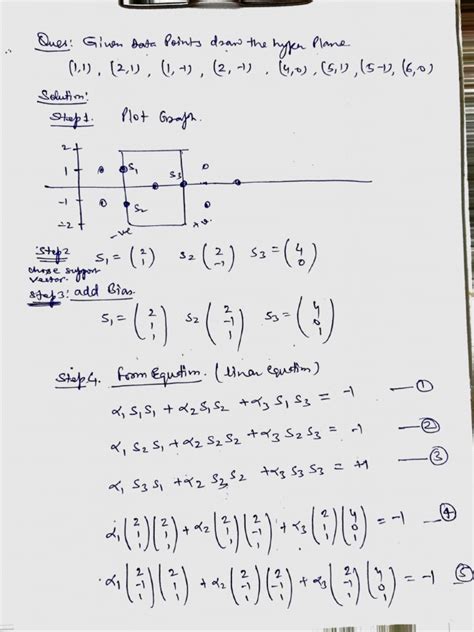 Ques: Given data Points draw the hyper Plane.
(1,1), (2,1), (1,-1), (2,-1), (4,0), (5,1), (5-1), (6,0)
Solution:
Step1. Plot Graph.
2
1 S1
S3
-1 S2
-2
-ve +ve
Step2 S1 = (2 1) S2 (2 -1) S3 = (4 0)
chose support
vector.
Step3: add Bias.
S1 = (2 1 1) S2 (2 -1 1) S3 = (4 0 1)
Step4. from Equation. (linear equation)
α1 S1 S1 + α2 S1 S2 + α3 S1 S3 = -1 — ①
α1 S2 S1 + α2 S2 S2 + α3 S2 S3 = -1 — ②
α1 S3 S1 + α2 S2 S2 + α3 S3 S3 = +1 — ③
α1 (2 1 1) (2 1 1) + α2 (2 1 1) (2 -1 1) + α3 (2 1 1) (4 0 1) = -1 — ④
α1 (2 -1 1) (2 1 1) + α2 (2 -1 1) (2 -1 1) + α3 (2 -1 1) (4 0 1) = -1 ⑤